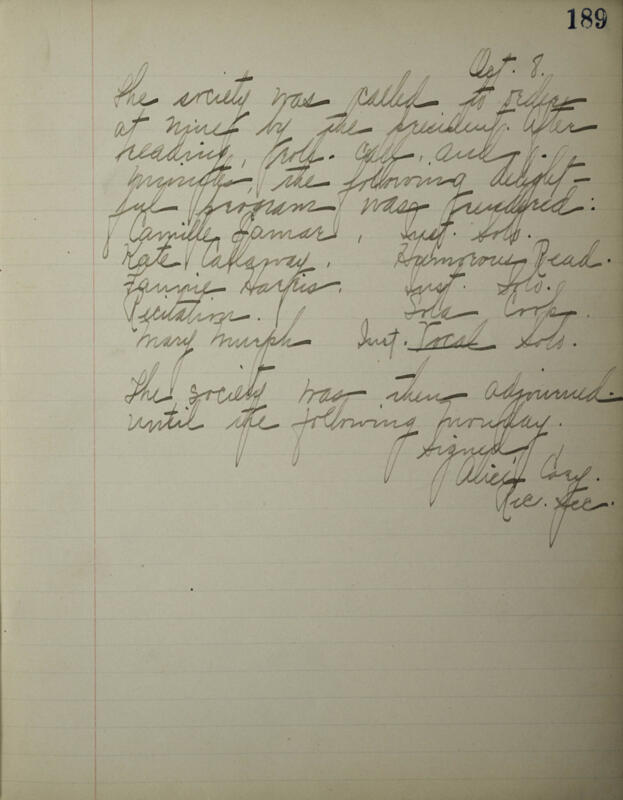 189
Oct. 8.
The society was called to order
at nine by the president. After
reading, roll-call, and
minutes, the following delight-
ful program was rendered:
Camille Lamar, Inst. Solo.
Kate Callaway. Humorous Read.
Fannie Harris. Inst. Solo.
Recitation. Iola Cook.
Mary Murph Inst. Vocal Solo.
The society was then adjourned
until the following monday.
Signed,
Alice Cory.
Rec. Sec.